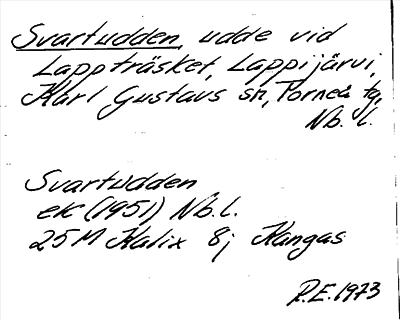 Svartudden, udde vid
Lappträsket, Lappijärvi,
Karl Gustavs sn, Torneå tg,
Nb. l.
Svartudden
ek (1951) Nb.l.
25M Kalix 8j Kangas
R.E. 1973